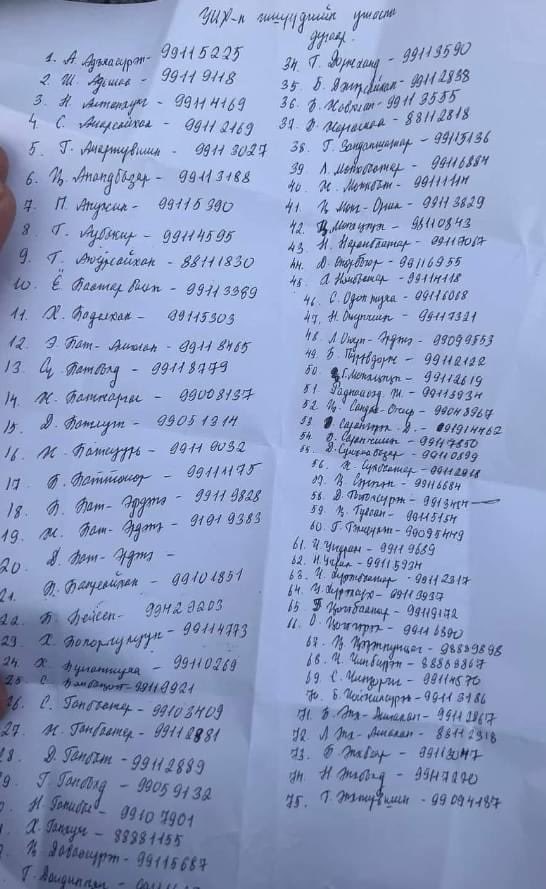 УИХ-н гишүүдийн утасны
дугаар.
1. А Адъяасүрэн - 99115225
2. Ш. Адьшаа - 99119118
3. Н. Алтанхуяг - 99114169
4. С. Амарсайхан - 99112169
5. Г. Амартүвшин - 99113027
6. Ц. Анандбазар - 99113188
7. П. Анужин - 99115390
8. Т. Аубакир - 99114595
9. Т. Аюурсайхан - 88111830
10. Ё. Баатарбилэг - 99113389
11. Х. Баделхан - 99115303
12. Э. Бат-Амгалан - 99118465
13. Сү. Батболд - 99118779
14. Ж. Батжаргал - 99008137
15. Д. Батлут - 99051314
16. Ж. Батсуурь - 99119032
17. Б. Баттөмөр - 99111175
18. Б. Бат-Эрдэнэ - 99119828
19. Ж. Бат-Эрдэнэ - 91919383
20. Д. Бат-Эрдэнэ -
21. Б. Баярсайхан - 99101851
22. Б. Бейсен - 99429203
23. Х. Болорчулуун - 99114773
24. Х. Булгантуяа - 99110269
25. С. Бямбацогт - 99119921
26. С. Ганбаатар - 99103409
27. Ж. Ганбаатар - 99112881
28. Д. Ганбат - 99112889
29. Г. Ганболд - 99059132
Н. Ганибал - 99107901
Х. Ганхуяг - 88881155
Ц. Даваасүрэн - 99115687
Г. Дамдинням
34. Т. Доржханд - 99113590
35. Б. Жавхлан - 99112838
36. Б. 99113555
37. 88112818
38. Г. Занданшатар - 99115136
39. Л. Мөнхбаатар - 99116884
40. Ж. Мөнхбат - 99111114
41. Ц. Мөнх-Оргил - 99113829
42. Ц. Мөнхцэцэг - 98110843
43. Н. Наранбаатар - 99117067
44. 99116955
45. А. 99114118
46. С. Одонтуяа - 99116068
47. Н. Учрал - 99117321
48. Л. Оюун-Эрдэнэ - 99099553
49. Б. Пүрэвдорж - 99112122
50. Г. Мөнхцэцэг - 99112619
51. 99113934
52. Ц. Сандаг-Очир - 99043967
53. Сарангэрэл Д. - 91914462
54. О. Саранчимэг - 99147850
55. Д. Сарангэрэл - 99110899
56. Ж. Сүхбаатар - 99112268
57. Ц. Сэргэлэн - 99116684
58. Д. Тогтохсүрэн - 9913414
59. Ц. Туваан - 99115154
60. Г. Тэмүүлэн - 99095449
61. Ч. Ундрам - 99119689
62. Н. Учрал - 99115934
63. Ч. Хүрэлбаатар - 99112317
64. 99113937
65. 99119172
66. О. Цогтгэрэл - 99116890
67. 98889898
68. Ч. Чинбат - 88889867
69. С. Чинзориг - 99114570
70. Б. 99113186
71. Б. Энх-Амгалан - 99112867
72. Л. Энх-Амгалан - 88112318
73. Б. Энхбаяр - 99113047
74. Н. Энхболд - 99117270
75. Т. Энхтүвшин - 99094187